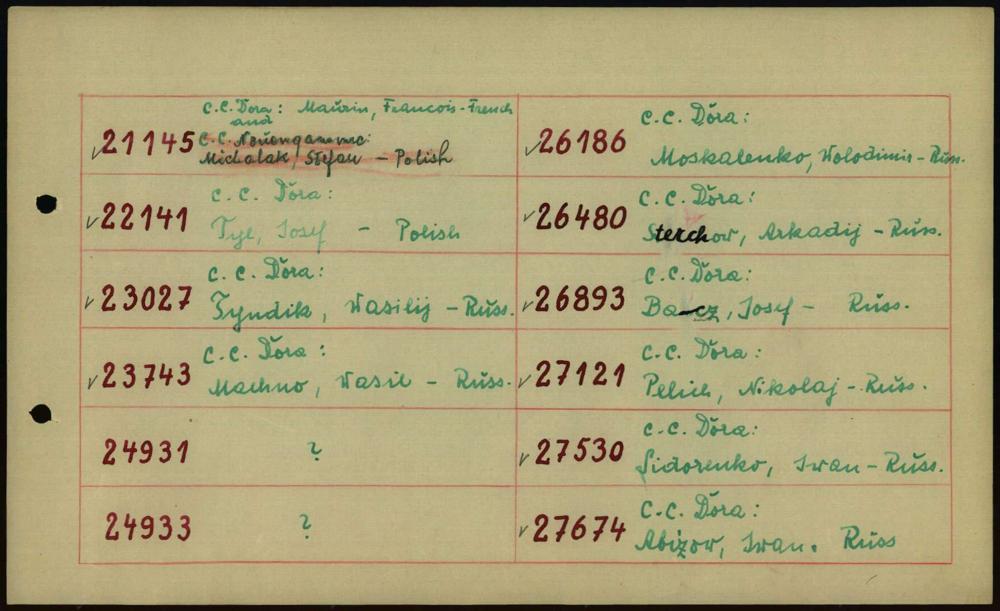 21145 C.C. Dora: Maurin, Francois - French
and
C.C. Neuengamme:
Michalak, Stefan - Polish
22141 C.C. Dora:
Tyl, Josef - Polish
23027 C.C. Dora:
Tyndik, Wasilij - Russ.
23743 C.C. Dora:
Machno, Wasil - Russ.
24931 ?
24933 ?
26186 C.C. Dora:
Moskalenko, Wolodimir - Russ.
26480 C.C. Dora:
Sterchow, Arkadij - Russ.
26893 C.C. Dora:
Bacz, Josef - Russ.
27121 C.C. Dora:
Pelich, Nikolaj - Russ.
27530 C.C. Dora:
Sidorenko, Iwan - Russ.
27674 C.C. Dora:
Abizow, Iwan. Russ